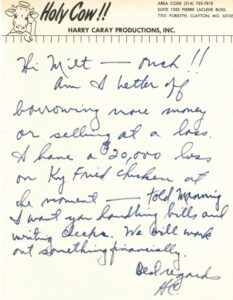 Holy Cow!!
AREA CODE (314) 725-7818
SUITE 1303 PIERRE LACLEDE BLDG.
7701 FORSYTH, CLAYTON, MO. 63105
HARRY CARAY PRODUCTIONS, INC.
Hi Milt — Ouch!!
Am I better off
borrowing more money
or selling at a loss.
I have a $20,000 loss
on Ky Fried Chicken at
the moment — told Manning
I want you handling bills and
writing checks. We will work
out something financially.
Best regards
HC